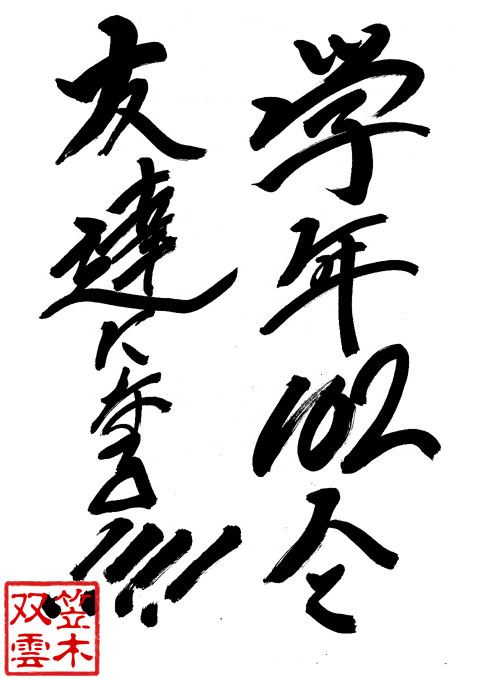 学年102人と
友達になる!!!!
笠木
双雲